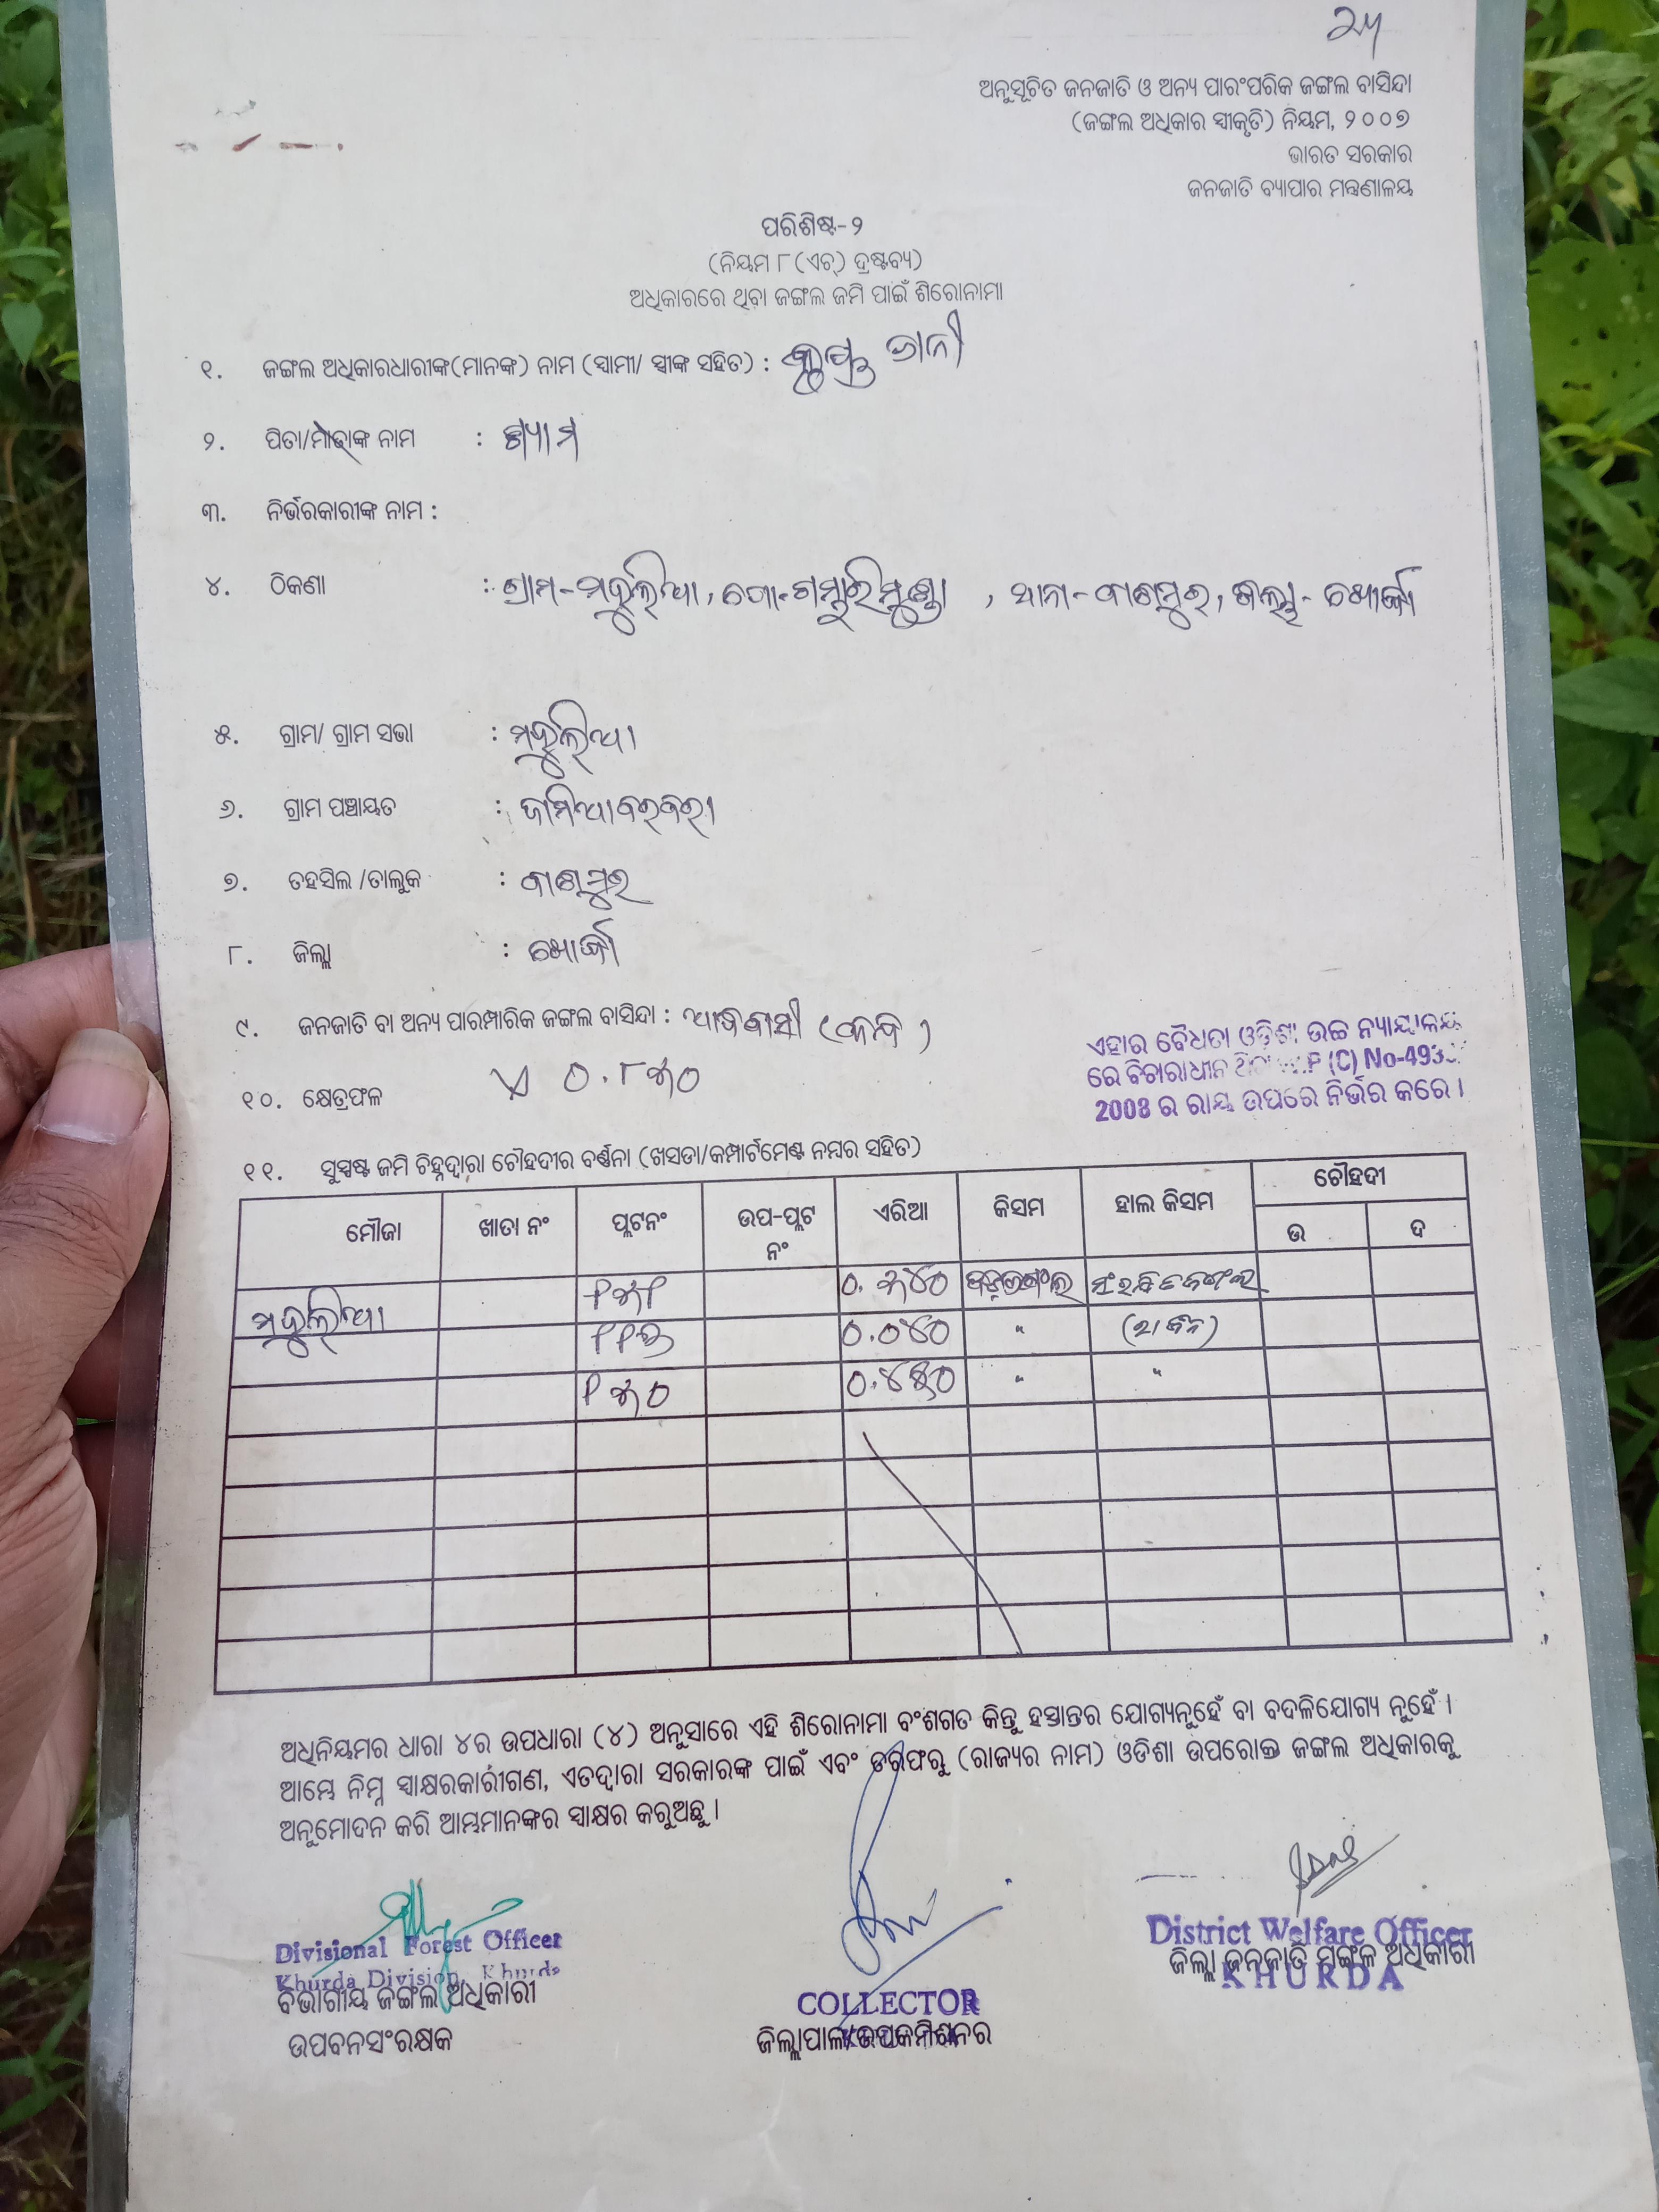 ଅନୁସୂଚିତ ଜନଜାତି ଓ ଅନ୍ୟ ପାରଂପରିକ ଜଙ୍ଗଲ ବାସିନ୍ଦା
(ଜଙ୍ଗଲ ଅଧିକାର ସ୍ୱୀକୃତି) ନିୟମ, ୨୦୦୭
ଭାରତ ସରକାର
ଜନଜାତି ବ୍ୟାପାର ମନ୍ତ୍ରଣାଳୟ
ପରିଶିଷ୍ଟ-୨
(ନିୟମ ୮(ଏଚ୍) ଦ୍ରଷ୍ଟବ୍ୟ)
ଅଧିକାରରେ ଥିବା ଜଙ୍ଗଲ ଜମି ପାଇଁ ଶିରୋନାମା
୧. ଜଙ୍ଗଲ ଅଧିକାରଧାରୀଙ୍କ(ମାନଙ୍କ) ନାମ (ସ୍ୱାମୀ/ ସ୍ତ୍ରୀଙ୍କ ସହିତ) : ଜାନୀ
୨. ପିତା/ମାତାଙ୍କ ନାମ : ଶ୍ୟାମ
୩. ନିର୍ଭରକାରୀଙ୍କ ନାମ :
୪. ଠିକଣା : ଗ୍ରାମ-ମଜୁଲିଆ, ପୋ-ଗମ୍ଭାରିମୁଣ୍ଡା, ଥାନା-ବାଣପୁର, ଜିଲ୍ଲା-ଖୋର୍ଦ୍ଧା
୫. ଗ୍ରାମ/ ଗ୍ରାମ ସଭା : ମଜୁଲିଆ
୬. ଗ୍ରାମ ପଞ୍ଚାୟତ :
୭. ତହସିଲ /ତାଲୁକ : ବାଣପୁର
୮. ଜିଲ୍ଲା : ଖୋର୍ଦ୍ଧା
୯. ଜନଜାତି ବା ଅନ୍ୟ ପାରମ୍ପାରିକ ଜଙ୍ଗଲ ବାସିନ୍ଦା : ଆଦିବାସୀ (କନ୍ଧ)
ଏହାର ବୈଧତା ଓଡ଼ିଶା ଉଚ୍ଚ ନ୍ୟାୟାଳୟ
ରେ ବିଚାରାଧୀନ (C) No-493
2008 ର ରାୟ ଉପରେ ନିର୍ଭର କରେ ।
୧୦. କ୍ଷେତ୍ରଫଳ ୦.୮୫୦
୧୧. ସୁସ୍ପଷ୍ଟ ଜମି ଚିହ୍ନଦ୍ୱାରା ଚୌହଦୀର ବର୍ଣ୍ଣନା (ଖସଡା/କମ୍ପାର୍ଟମେଣ୍ଟ ନମ୍ବର ସହିତ)
ମୌଜା ଖାତା ନଂ ପ୍ଲଟନଂ ଉପ-ପ୍ଲଟ ନଂ ଏରିଆ କିସମ ହାଲ କିସମ ଚୌହଦୀ
ଉ ଦ
ମଜୁଲିଆ ୧୫୧ ସଂରକ୍ଷିତ ଜଙ୍ଗଲ
୦.୦୪୦ "
୧୫୦ " "
ଅଧିନିୟମର ଧାରା ୪ର ଉପଧାରା (୪) ଅନୁସାରେ ଏହି ଶିରୋନାମା ବଂଶଗତ କିନ୍ତୁ ହସ୍ତାନ୍ତର ଯୋଗ୍ୟନୁହେଁ ବା ବଦଳିଯୋଗ୍ୟ ନୁହେଁ ।
ଆମ୍ଭେ ନିମ୍ନ ସ୍ୱାକ୍ଷରକାରୀଗଣ, ଏତଦ୍ୱାରା ସରକାରଙ୍କ ପାଇଁ ଏବଂ ତରଫରୁ (ରାଜ୍ୟର ନାମ) ଓଡିଶା ଉପରୋକ୍ତ ଜଙ୍ଗଲ ଅଧିକାରକୁ
ଅନୁମୋଦନ କରି ଆମ୍ଭମାନଙ୍କର ସ୍ୱାକ୍ଷର କରୁଅଛୁ ।
Divisional Forest Officer
Khurda Division, Khurda
ବିଭାଗୀୟ ଜଙ୍ଗଲ ଅଧିକାରୀ
ଉପବନସଂରକ୍ଷକ
COLLECTOR
ଜିଲ୍ଲାପାଳ/ଉପକମିଶନର
District Welfare Officer
ଜିଲ୍ଲା ଜନଜାତି ମଙ୍ଗଳ ଅଧିକାରୀ
KHURDA